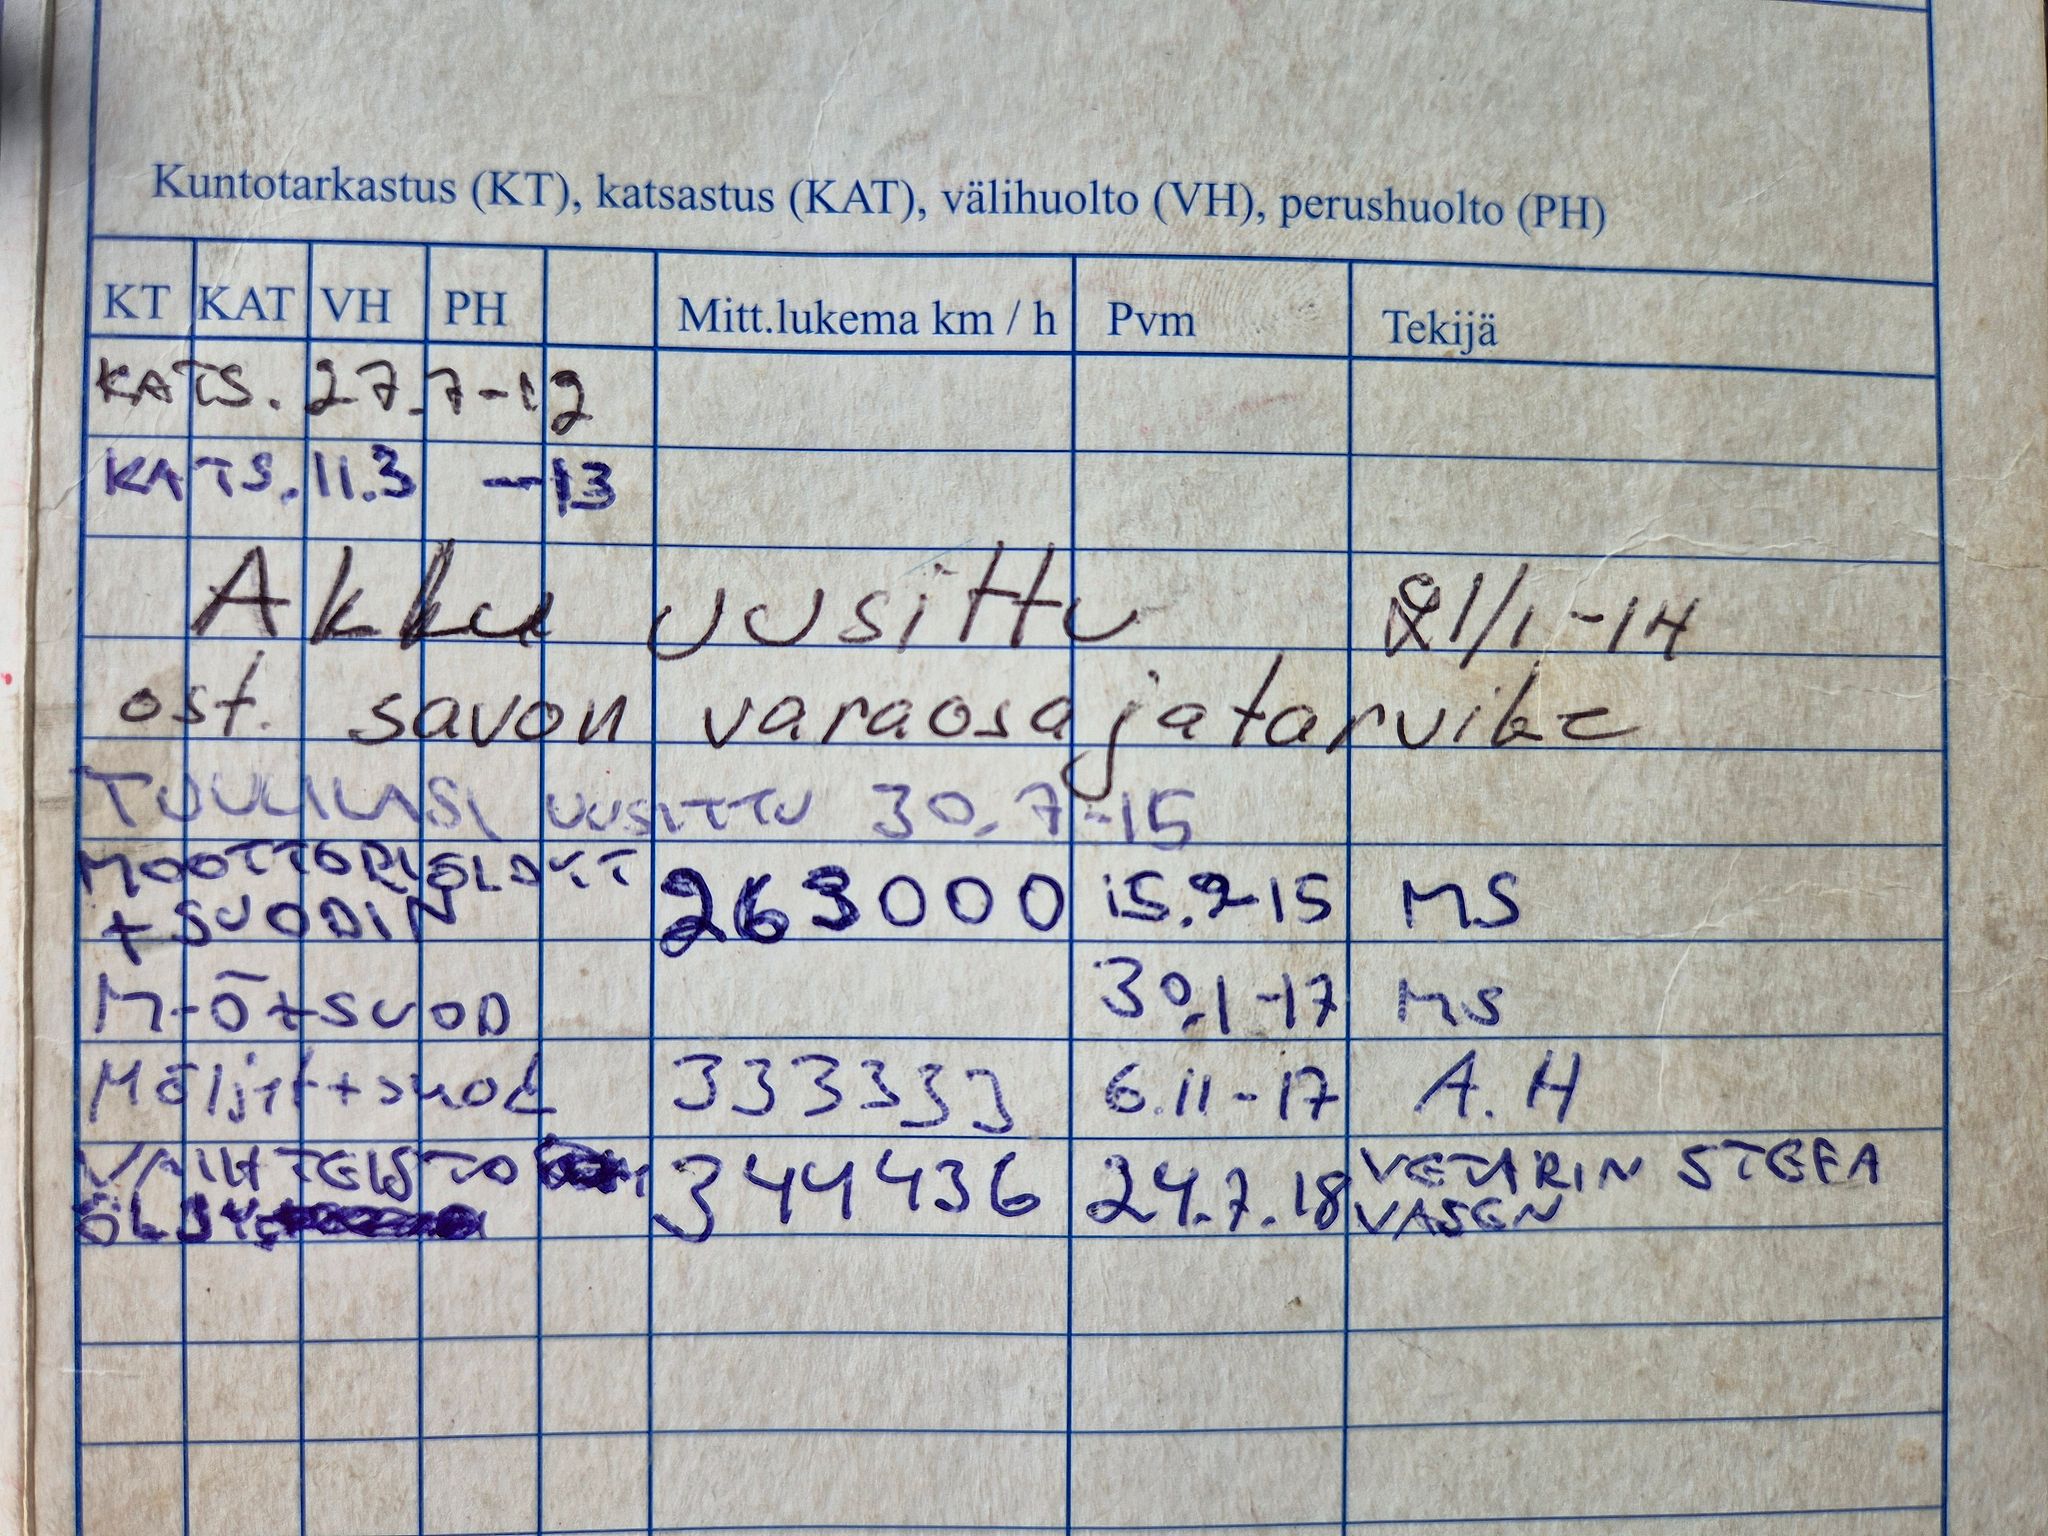 Kuntotarkastus (KT), katsastus (KAT), välihuolto (VH), perushuolto (PH)
KT KAT VH PH Mitt.lukema km / h Pvm Tekijä
KATS. 27.7-12
KATS. 11.3 -13
Akku uusittu 21/1-14
ost. savon varaosa ja tarvike
TUULILASI UUSITTU 30.7-15
MOOTTORIÖLJYT
+ SUODIN 263000 15.9-15 MS
M-Ö+SUOD 30.1-17 MS
Möljyt+suod 333333 6.11-17 A.H
VAIHTEISTO 344436 24.7.18 VETÄRIN STEFA
ÖLJY VASEN